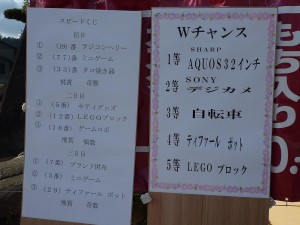 スピードくじ
初日
① (19番) フジコンベリー
② (77番) ミニゲーム
③ (33番) タコ焼き器
残賞 奇数
二日目
① (5番) キティグッズ
② (12番) LEGOブロック
③ (18番) ゲームロボ
残賞 偶数
三日目
① (7番) ブランド財布
② (3番) ミニゲーム
③ (29) ティファール ポット
残賞 奇数
Wチャンス
SHARP
1等 AQUOS32インチ
SONY
2等 デジカメ
3等 自転車
4等 ティファール ポット
5等 LEGO ブロック